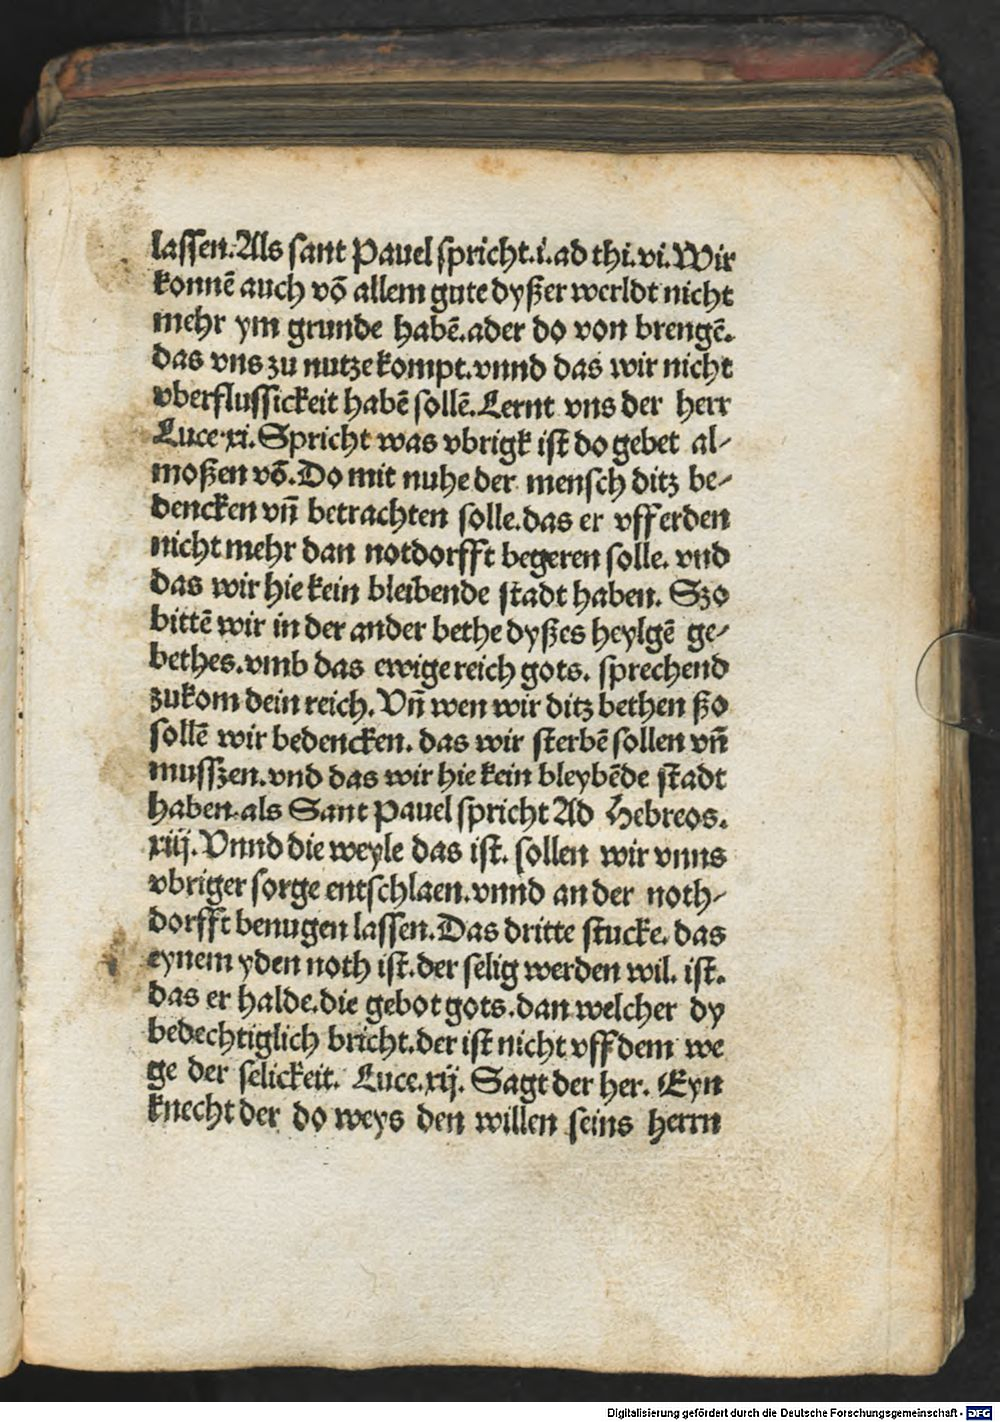 lassen. Als sant Pauel spricht. i. ad thi. vi. Wir
konnē auch vō allem gute dyßer werldt nicht
mehr ym grunde habē. ader do von brengē.
das vns zu nutze kompt. vnnd das wir nicht
vberflussickeit habē sollē. Lernt vns der herr
Luce. xi. Spricht was vbrigk ist do gebet al-
moßen vō. Do mit nuhe der mensch ditz be-
dencken vn̄ betrachten solle. das er vff erden
nicht mehr dan notdorfft begeren solle. vnd
das wir hie kein bleibende stadt haben. Szo
bittē wir in der ander bethe dyßes heylgē ge-
bethes. vmb das ewige reich gots. sprechend
zukom dein reich. Vn̄ wen wir ditz bethen ßo
sollē wir bedencken. das wir sterbē sollen vn̄
musszen. vnd das wir hie kein bleybēde stadt
haben. als Sant Pauel spricht Ad Hebreos.
xiij. Vnnd die weyle das ist. sollen wir vnns
vbriger sorge entschlaen. vnnd an der noth-
dorfft benugen lassen. Das dritte stucke. das
eynem yden noth ist. der selig werden wil. ist.
das er halde. die gebot gots. dan welcher dy
bedechtiglich bricht. der ist nicht vff dem we
ge der selickeit. Luce. xij. Sagt der her. Eyn
knecht der do weys den willen seins herrn
Digitalisierung gefördert durch die Deutsche Forschungsgemeinschaft - DFG